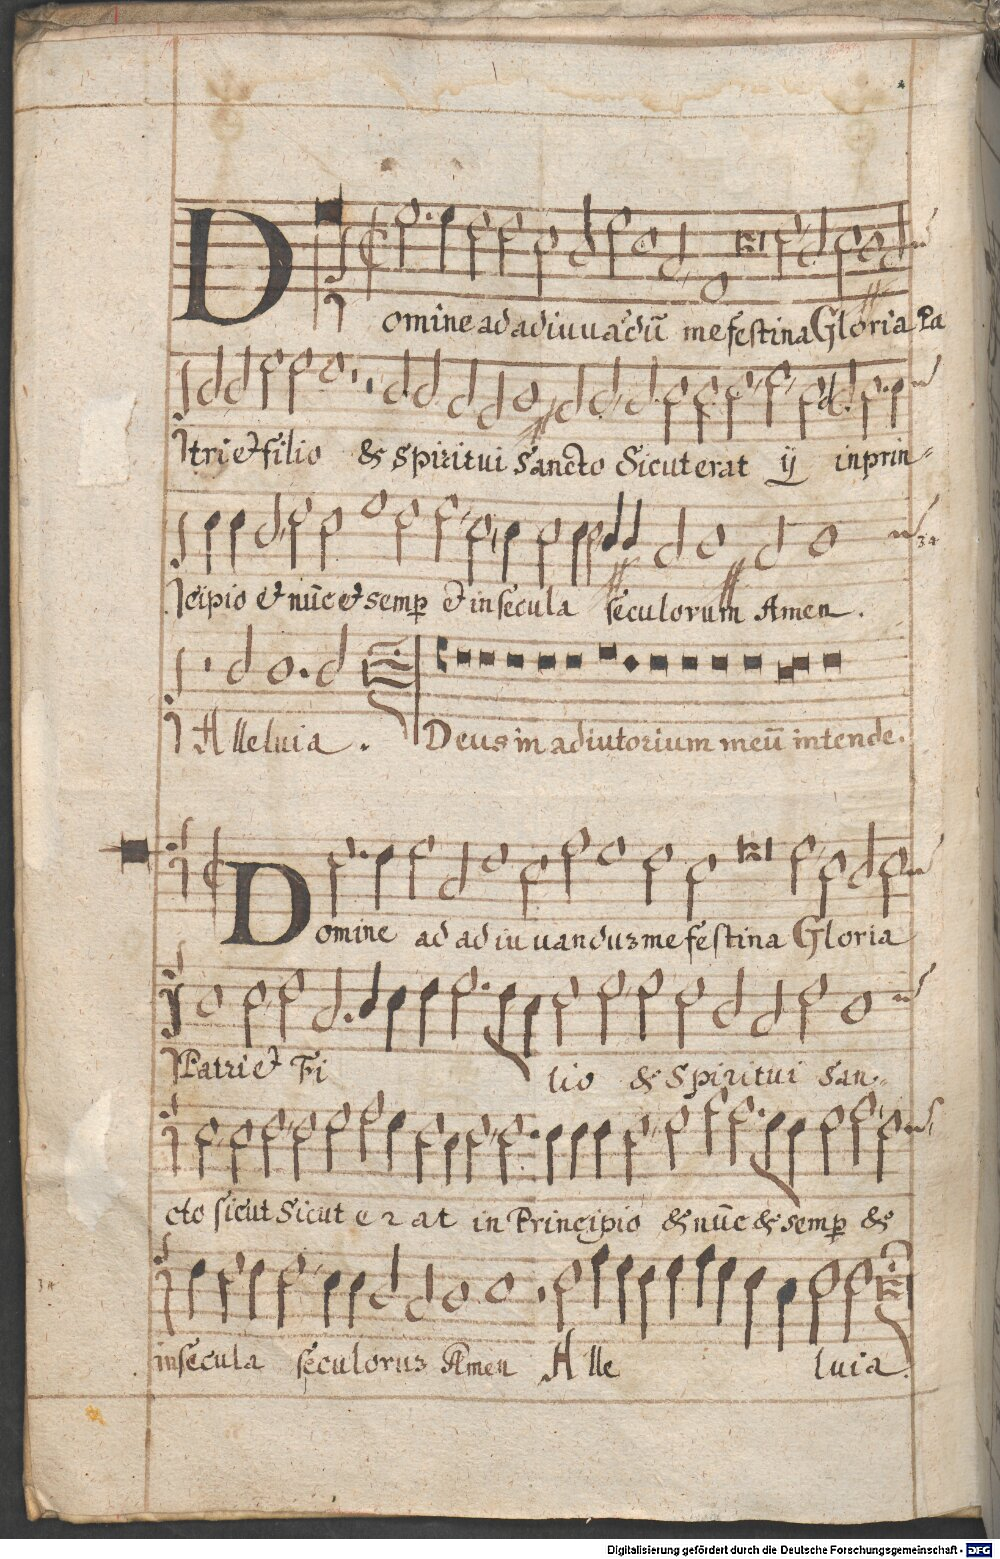 Domine ad adiuua᷃dū me festina Gloria Pa
tri et filio & Spiritui Sancto Sicut erat ij in prin=
cipio et nūc et semꝑ et in secula seculorum Amen.
Alleluia. Deus in adiutorium meū intende.
Domine ad adiuuanduz me festina Gloria
Patri et Fi lio & Spiritui San=
cto sicut Sicut erat in Principio & nūc & semꝑ &
in secula seculoruz Amen Alle luia.
Digitalisierung gefördert durch die Deutsche Forschungsgemeinschaft - DFG